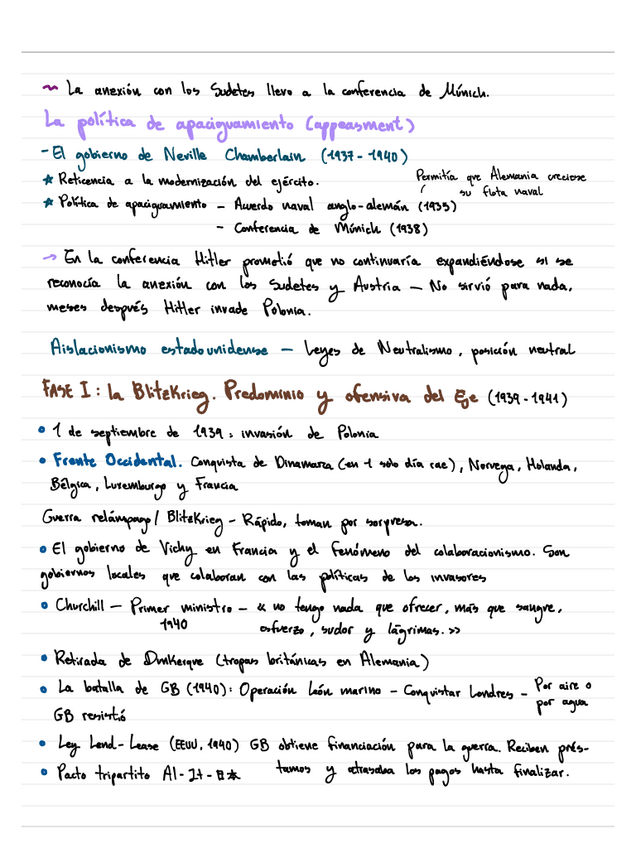 ~ La anexión con los Sudetes llevo a la conferencia de Múnich.
La política de apaciguamiento (appeasment)
- El gobierno de Neville Chamberlain (1937 - 1940)
★ Reticencia a la modernización del ejército.
Permitía que Alemania creciese
su flota naval
★ Política de apaciguamiento - Acuerdo naval anglo-alemán (1935)
- Conferencia de Múnich (1938)
→ En la conferencia Hitler prometió que no continuaría expandiéndose si se
reconocía la anexión con los Sudetes y Austria - No sirvió para nada,
meses después Hitler invade Polonia.
Aislacionismo estadounidense - Leyes de Neutralismo, posición neutral
FASE I: la Blitzkrieg. Predominio y ofensiva del Eje (1939 - 1941)
• 1 de septiembre de 1939: invasión de Polonia
• Frente Occidental. Conquista de Dinamarca (en 1 solo día cae), Noruega, Holanda,
Bélgica, Luxemburgo y Francia
Guerra relámpago / Blitzkrieg - Rápido, toman por sorpresa.
• El gobierno de Vichy en Francia y el fenómeno del colaboracionismo. Son
gobiernos locales que colaboran con las políticas de los invasores
• Churchill - Primer ministro - « no tengo nada que ofrecer, más que sangre,
1940 esfuerzo, sudor y lágrimas. »
• Retirada de Dunkerque (tropas británicas en Alemania)
• La batalla de GB (1940): Operación león marino - Conquistar Londres - Por aire o
por agua
GB resistió
• Ley Lend-Lease (EEUU, 1940) GB obtiene financiación para la guerra. Reciben prés-
tamos y atrasaba los pagos hasta finalizar.
• Pacto tripartito Al - It - 日本